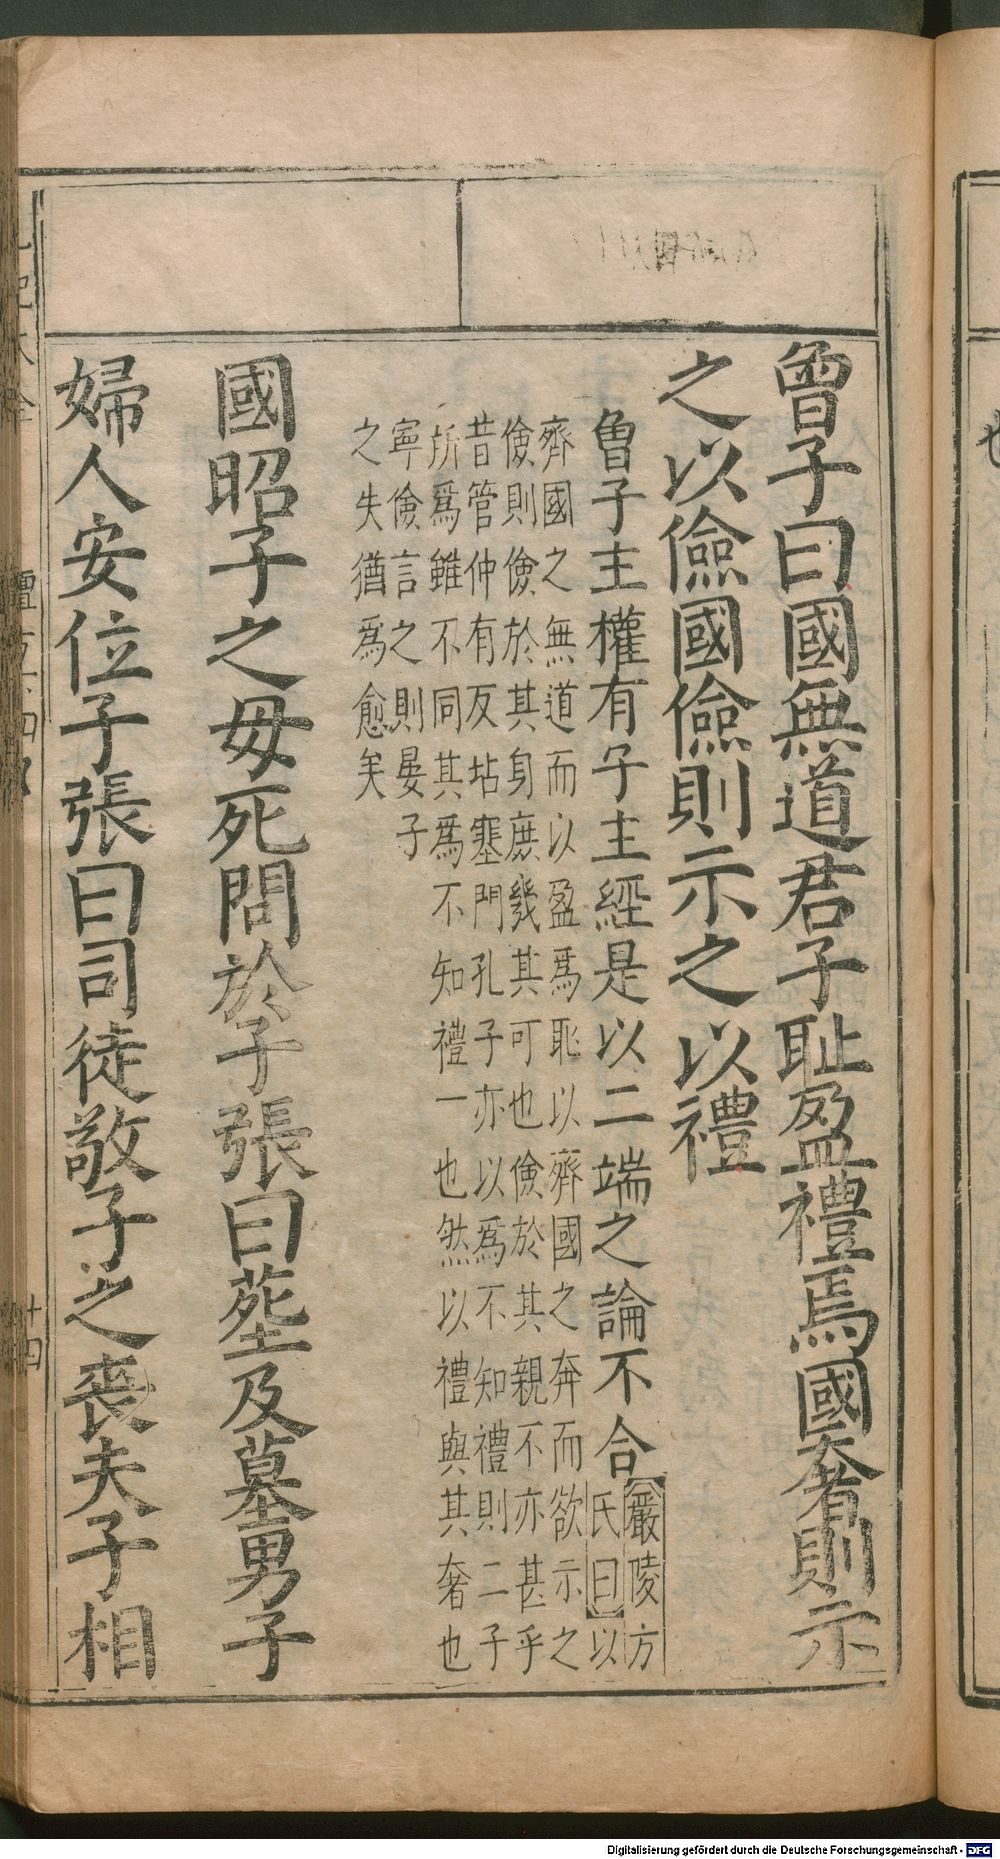 曾子曰國無道君子耻盈禮焉國奢則示
之以儉國儉則示之以禮
曾子主權有子主經是以二端之論不合
嚴陵方
氏曰以
齊國之無道而以盈爲恥以齊國之奔而欲示之
儉則儉於其身庶幾其可也儉於其親不亦甚乎
昔管仲有反坫塞門孔子亦以爲不知禮則二子
所爲雖不同其爲不知禮一也然以禮與其奢也
寧儉言之則晏子
之失猶爲愈矣
國昭子之母死問於子張曰葬及墓男子
婦人安位子張曰司徒敬子之喪夫子相
十四
Digitalisierung gefördert durch die Deutsche Forschungsgemeinschaft - DFG